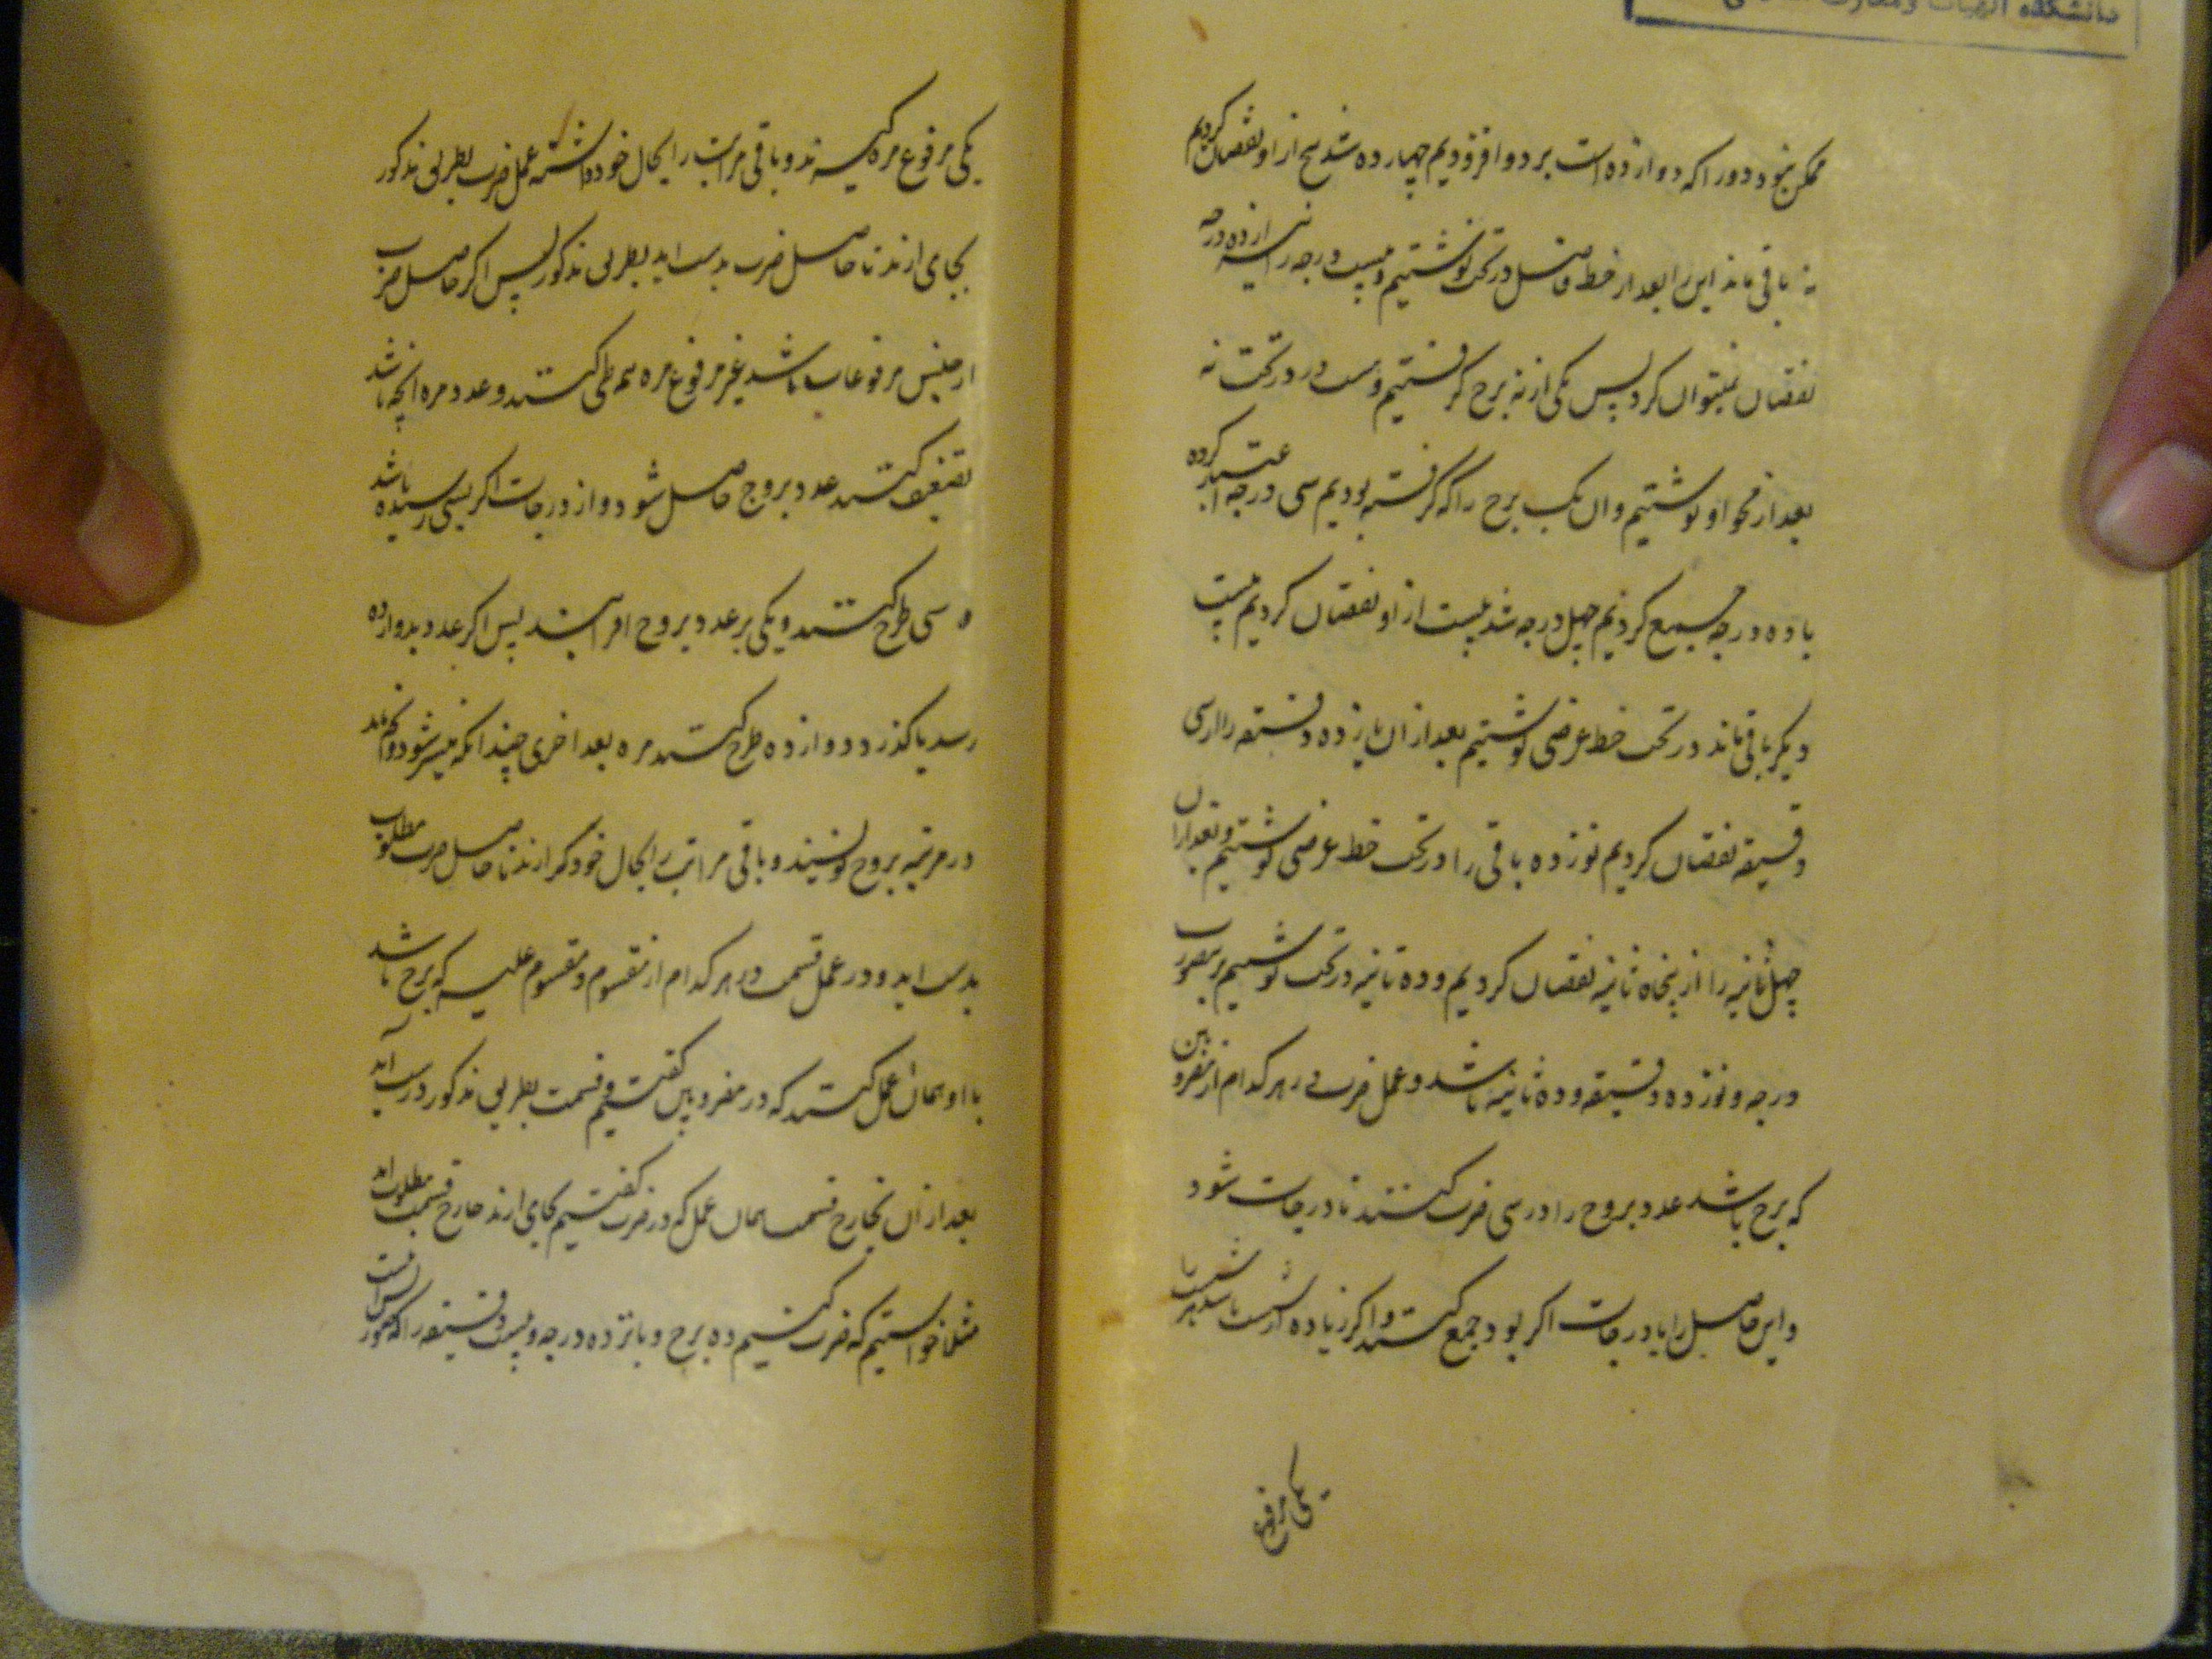 دانشکده الهیات و معارف
ممکن نبود دور را که دوازده است بر دو افزودیم چهارده شد پنج از او نقصان کردیم
نه باقی ماند این را بعد از خط فاصل در تحت نوشتیم و بیست درجه را از ده درجه
نقصان نمیتوان کرد پس یکی از نه برج گرفتیم و در تحت نه
بعد از محو او نوشتیم و ان یک برج را که گرفته بودیم سی درجه اعتبار کرده
با ده درجه جمع کردیم چهل درجه شد بیست از او نقصان کردیم بیست
دیگر باقی ماند در تحت خط عرضی نوشتیم بعد از ان یازده دقیقه را از سی
دقیقه نقصان کردیم نوزده باقی را در تحت خط عرضی نوشتیم و بعد از ان
چهل ثانیه را از پنجاه ثانیه نقصان کردیم و ده ثانیه در تحت نوشتیم
درجه و نوزده دقیقه و ده ثانیه باشد و عمل ضرب در هر کدام از مضروبین
که برج باشد عدد بروج را در سی ضرب کنند تا درجات شود
و این حاصل را با درجات اکر بود جمع کنند و اکر زیاده از شصت باشد شصت را
یکی مرفوع
یکی مرفوع مره کیرند و باقی مراتب را بحال خود داشته عمل ضرب بطریق مذکور
بجای ارند تا حاصل ضرب بدست اید بطریق مذکور پس اکر حاصل ضرب
از جنس مرفوعات باشد غیر مرفوع مره همه طی کنند و عدد مره انچه باشد
تضعیف کنند عدد بروج حاصل شود و از درجات اکر بسی رسیده باشد
سی طرح کنند و یکی بر عدد بروج افزایند پس اکر عدد بدوازده
رسد یا کذرد دوازده طرح کنند مره بعد اخری چندانکه میسر شود
در مرتبه بروج نویسند و باقی مراتب را بحال خود کذارند تا حاصل ضرب مطلوب
بدست اید و در عمل قسمت در هر کدام از مقسوم و مقسوم علیه که برج باشد
با او همان عمل کنند که در مضروبین کفتیم و قسمت بطریق مذکور
بعد از ان بخارج قسمت همان عمل که در ضرب کفتیم بجای ارند خارج قسمت مطلوب اید
مثلا خواستیم که ضرب کنیم ده برج و پانزده درجه و بیست دقیقه را که